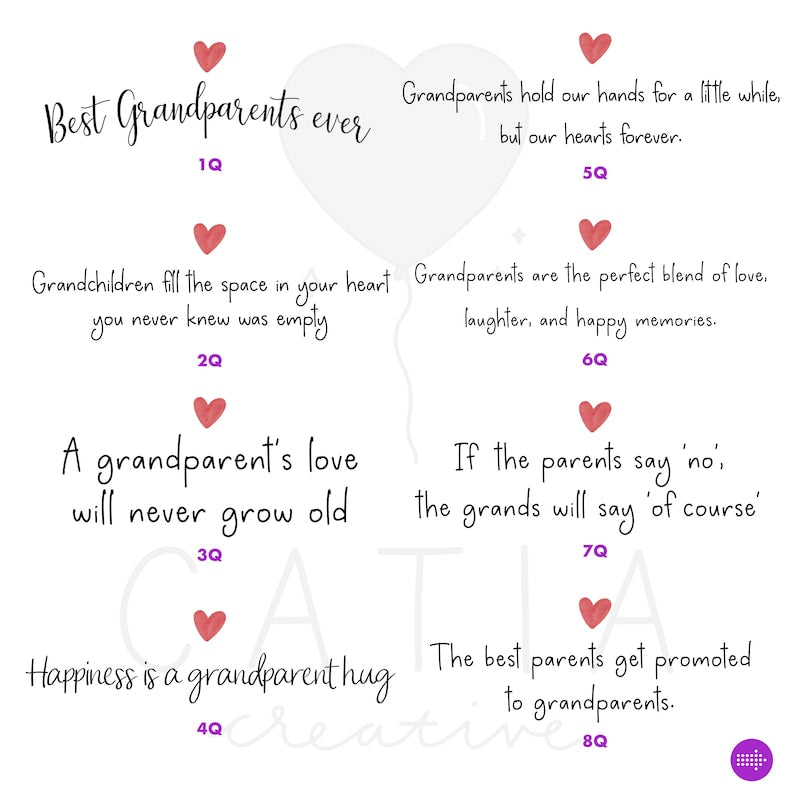 Best Grandparents ever
1Q
Grandchildren fill the space in your heart
you never knew was empty
2Q
A grandparent's love
will never grow old
3Q
Happiness is a grandparent hug
4Q
Grandparents hold our hands for a little while,
but our hearts forever.
5Q
Grandparents are the perfect blend of love,
laughter, and happy memories.
6Q
If the parents say 'no',
the grands will say 'of course'
7Q
The best parents get promoted
to grandparents.
8Q
CATIA
creative